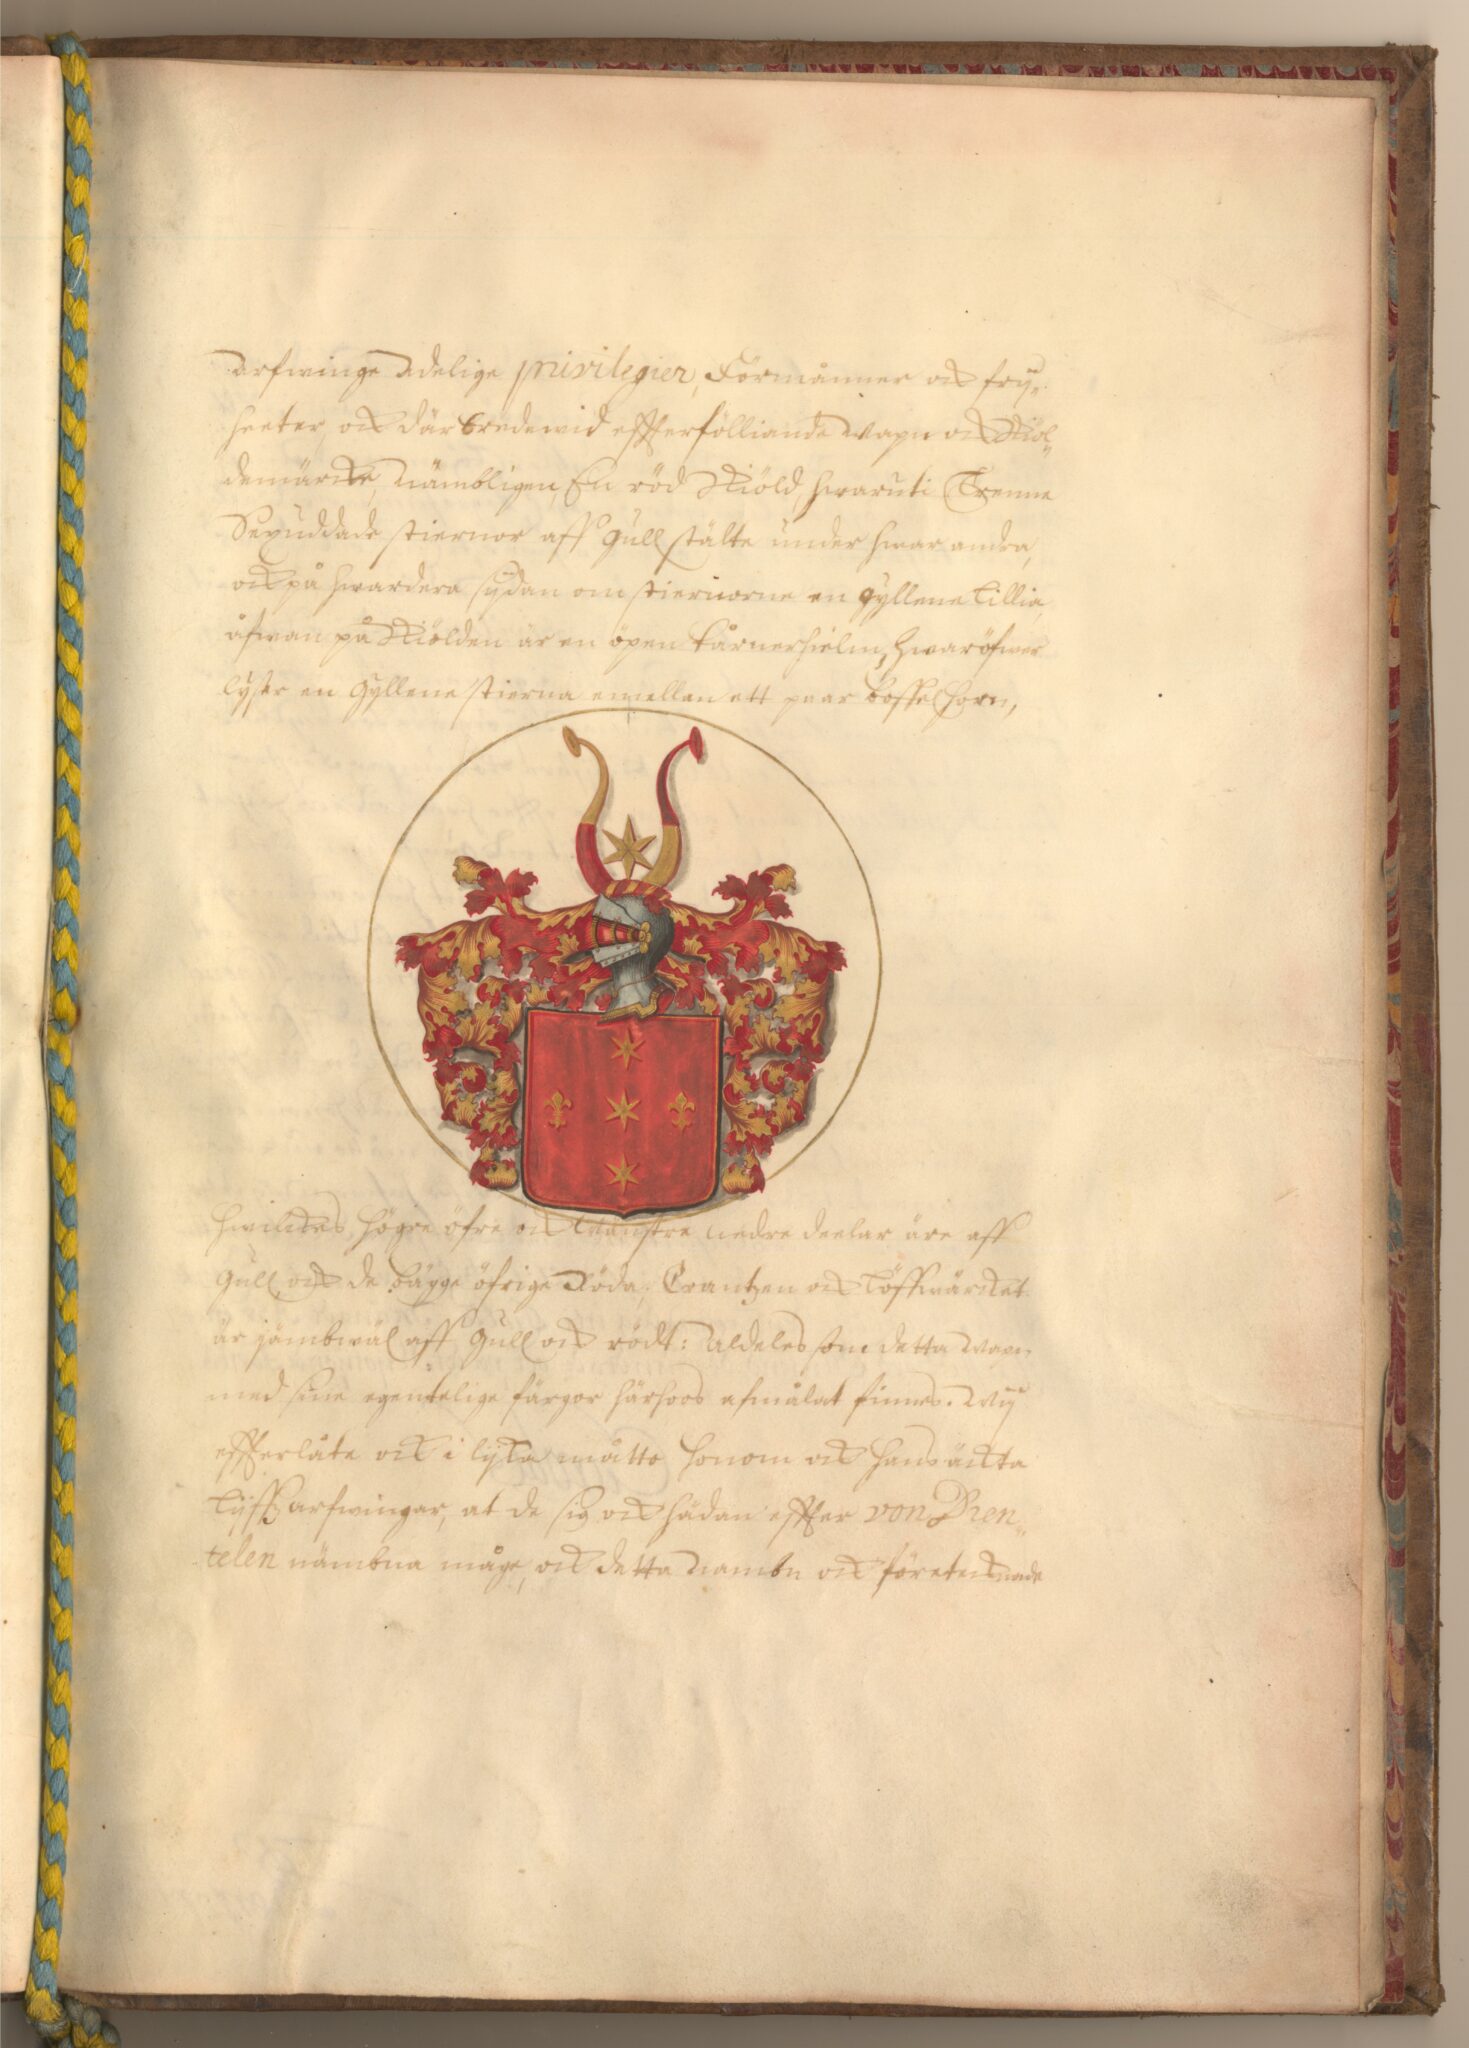 arfwinge Adelige privilegier, Förmåner och frij-
heeter, och där bredewid effterfölliande Wapn och Skiöl-
demärcke, Nämbligen, En röd Skiöld, hwaruti Trenne
Sexuddade stiernor aff Gull stälte under hwar andra,
och på hwardera sijdan om stiernorne en gyllene Lillia,
åfwan på Skiölden är en öpen Tårnerhielm, hwaröfwer
lyser en Gyllene stierna emellan ett paar Boffelhorn,
hwilckes högre öfre och Wänstre nedre deelar äre aff
Gull och de bägge öfrige Röda; Crantzen och Löffwärcket
är jämbwäl aff Gull och rödt: Aldeles som detta Wapn
med sine egentelige färgor härhoos afmålat finnes. Wij
effterlåte och i lijka måtto honom och hans äckta
Lijffzarfwingar, at de sig och hädan effter von Pren-
telen nämbna måge, och detta Nambn och företecknade